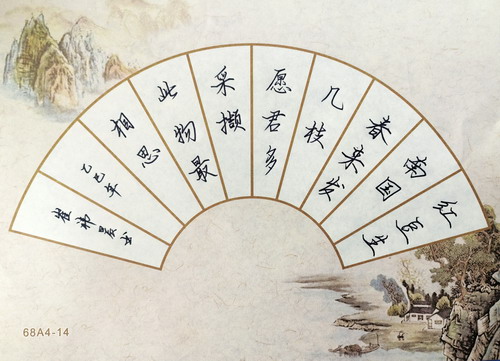 红豆生
南国
春来发
几枝
愿君多
采撷
此物最
相思
乙巳年
崔 书
68A4-14